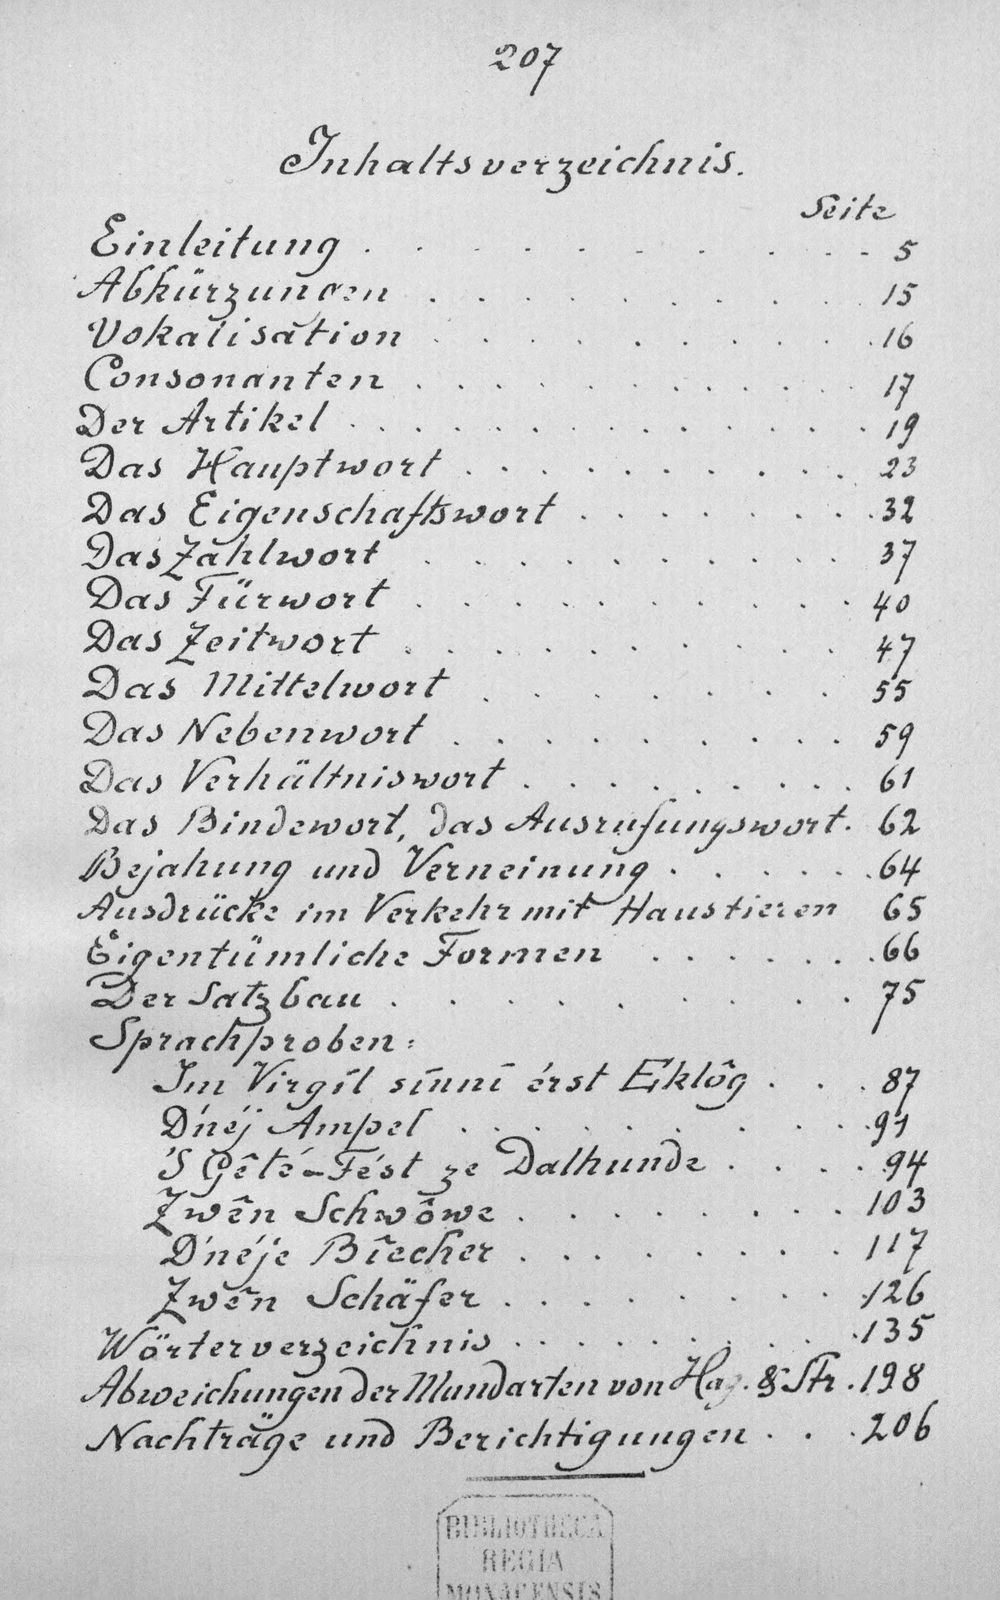 207
Inhaltsverzeichnis.
Seite
Einleitung . . . . . . . . . 5
Abkürzungen . . . . . . . . . 15
Vokalisation . . . . . . . . . 16
Consonanten . . . . . . . . . 17
Der Artikel . . . . . . . . . 19
Das Hauptwort . . . . . . . . . 23
Das Eigenschaftswort . . . . . . . 32
Das Zahlwort . . . . . . . . . 37
Das Fürwort . . . . . . . . . 40
Das Zeitwort . . . . . . . . . 47
Das Mittelwort . . . . . . . . 55
Das Nebenwort . . . . . . . . 59
Das Verhältniswort . . . . . . . . 61
Das Bindewort, das Ausrufungswort. 62
Bejahung und Verneinung . . . . . . 64
Ausdrücke im Verkehr mit Haustieren 65
Eigentümliche Formen . . . . . . 66
Der Satzbau . . . . . . . . . 75
Sprachproben:
Im Virgíl sínní érst Eklôg . . . 87
D'néj Ampel . . . . . . . . . 91
'S Gêté-Fést ze Dalhunde . . . . 94
Zwên Schwôwe . . . . . . . . 103
D'néje Bîecher . . . . . . . . 117
Zwên Schäfer . . . . . . . . 126
Wörterverzeichnis . . . . . . . . 135
Abweichungen der Mundarten von Hag. & Str. 198
Nachträge und Berichtigungen . . . 206
BIBLIOTHECA
REGIA
MONACENSIS